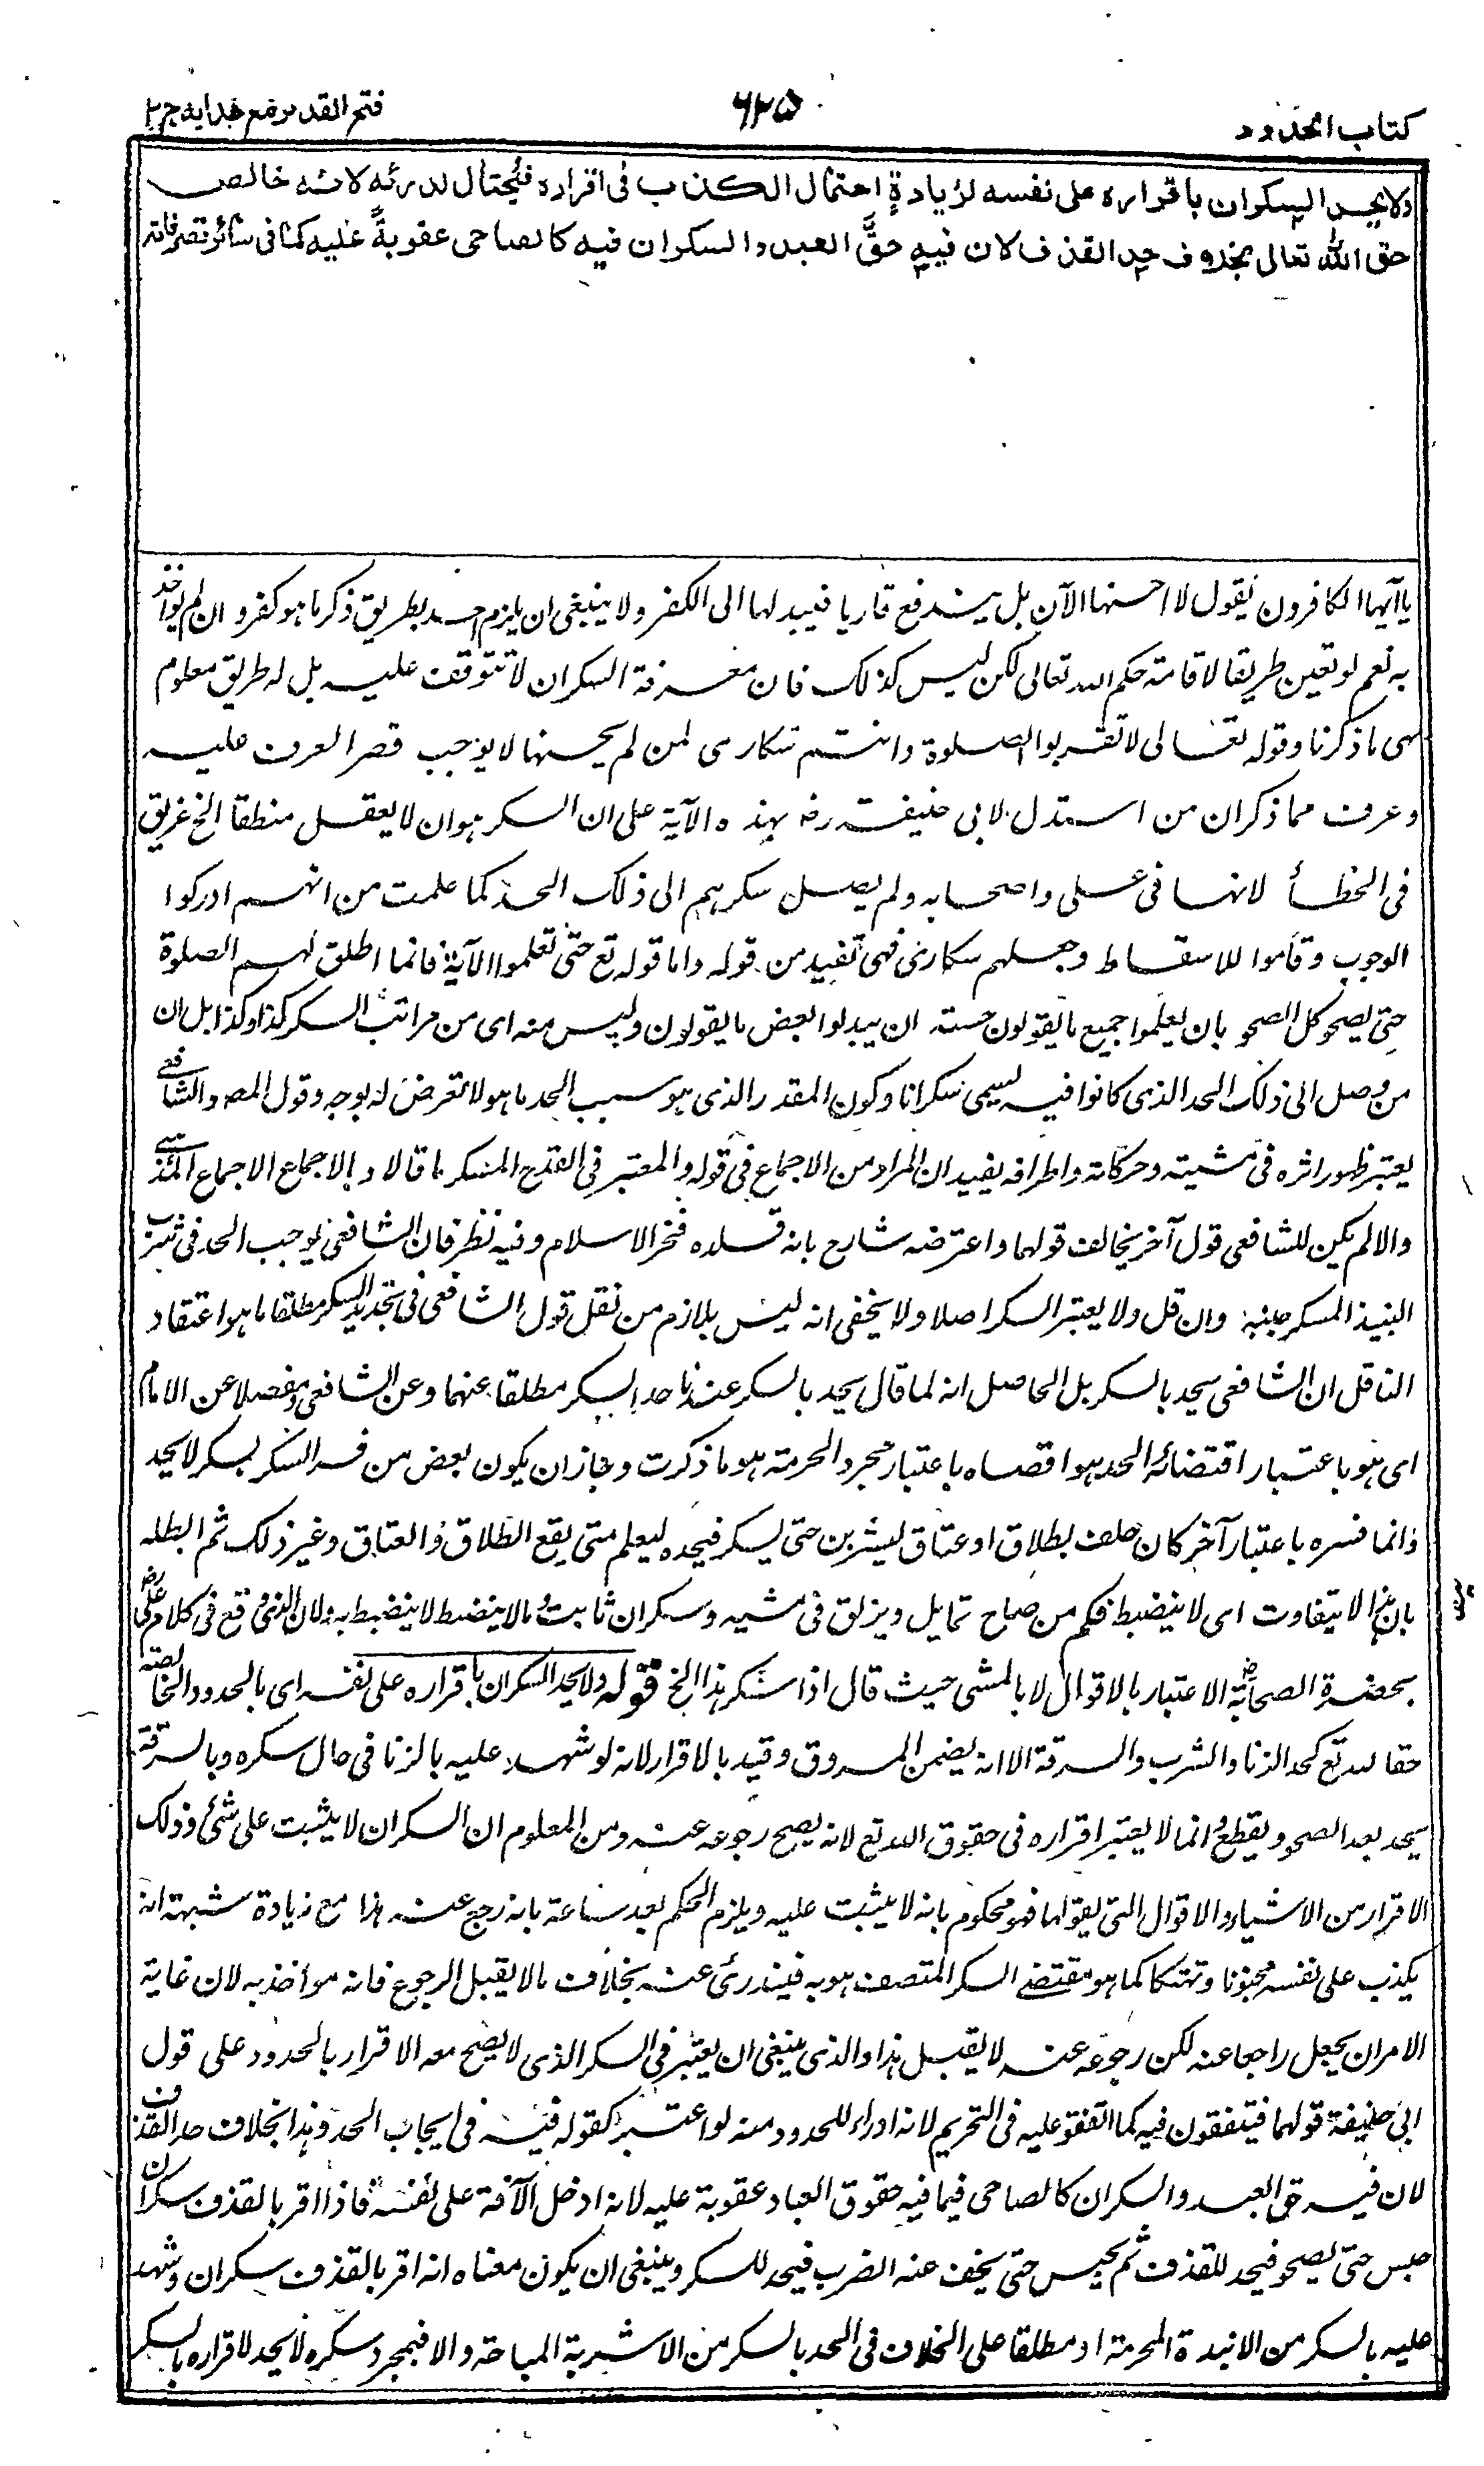 كتاب الحدود
٦٢٥
فتح القدير مع هدايه ج ٢
ولا يحد السكران باقراره على نفسه لزيادة احتمال الكذب فى اقراره فيحتال لدرئه لانه خالص
حق الله تعالى بخلاف حد القذف لان فيه حق العبد والسكران فيه كالصاحى عقوبة عليه كما فى سائر تصرفاته
يا ايها الكافرون فيقول لا احسنها الآن بل يندفع قاريا فيبدلها الى الكفر ولا ينبغى ان يلزم احد بطريق ذكر ما هو كفر وان لم يواخذ
به نعم لو تعين طريقا لاقامة حكم الله تعالى لكن ليس كذلك فان معرفة السكران لا تتوقف عليه بل له طريق معلوم
هى ما ذكرنا وقوله تعالى لا تقربوا الصلوة وانتم سكارى لمن لم يحسنها لا يوجب قصر العرف عليه
وعرف مما ذكر ان من استدل لابى حنيفة رضـ بهذه الآية على ان السكر هو ان لا يعقل منطقا الخ غريق
فى الخطأ لانها فى على واصحابه ولم يصل سكرهم الى ذلك الحد كما علمت من انهم ادركوا
الوجوب وقاموا للاسقاط وجعلهم سكارى فهى تفيد من قوله واما قوله تع حتى تعلموا الآية فانما اطلق لهم الصلوة
حتى يصحو كل الصحو بان يعلموا جميع ما يقولون خشية ان يبدلوا بعض ما يقولون وليس منه اى من مراتب السكر كذا وكذا بل ان
من وصل الى ذلك الحد الذى كانوا فيه يسمى سكرانا وكون المقدر الذى هو سبب الحد ما هو لا تعرض له بوجه وقول المصـ والشافعى
يعتبر ظهور اثره فى مشيته وحركاته واطرافه يفيد ان المراد من الاجماع فى قوله والمعتبر فى القدح المسكر ما قالا بالاجماع الاجماع المذهبى
والا لم يكن للشافعى قول آخر يخالف قولهما واعترضه شارح بانه قلده فخر الاسلام وفيه نظر فان الشافعى يوجب الحد فى شرب
النبيذ المسكر جنسه وان قل ولا يعتبر السكر اصلا ولا يخفى انه ليس بلازم من نقل قول الشافعى فى تحديد السكر مطلقا ما هو اعتقاد
الناقل ان الشافعى يحد بالسكر بل الحاصل انه لما قال يحد بالسكر عندنا حد السكر مطلقا عنهما وعن الشافعى ومفصلا عن الامام
اى هو باعتبار اقتضائه الحد هو اقصاه باعتبار مجرد الحرمة هو ما ذكرت وجاز ان يكون بعض من فسر السكر بسكر لا يحد
وانما فسره باعتبار آخر كان حلف بطلاق او عتاق ليشربن حتى يسكر فيحده ليعلم متى يقع الطلاق والعتاق وغير ذلك ثم ابطله
بان هذا لا يتفاوت اى لا ينضبط فكم من صاح تمايل ويزلق فى مشيه وسكران ثابت وما لا ينضبط لا ينضبط به ولان الذى وقع فى كلام على رضـ
بحضرة الصحابة الاعتبار بالاقوال لا بالمشى حيث قال اذا سكر هذا الخ قوله ولا يحد السكران باقراره على نفسه اى بالحدود الخالصة
حقا لله تع كحد الزنا والشرب والسرقة الا انه يضمن المسروق وقيد بالاقرار لانه لو شهد عليه بالزنا فى حال سكره وبالسرقة
يحد بعد الصحو ويقطع وانما لا يعتبر اقراره فى حقوق الله تع لانه يصح رجوعه عنه ومن المعلوم ان السكران لا يثبت على شئ وذلك
الاقرار من الاشياء والاقوال التى يقولها فهو محكوم بانه لا يثبت عليه ويلزم الحكم بعد ساعة بانه رجع عنه هذا مع زيادة شبهة انه
يكذب على نفسه مجونا وتهتكا كما هو مقتضى السكر المتصف هو به فيندرئ عنه بخلاف ما لا يقبل الرجوع فانه مواخذ به لان غاية
الامر ان يجعل راجعا عنه لكن رجوعه عنه لا يقبل هذا والذى ينبغى ان يعتبر فى السكر الذى لا يصح معه الاقرار بالحدود على قول
ابى حنيفة قولهما فيتفقون فيه كما اتفقوا عليه فى التحريم لانه ادراء للحدود منه لو اعتبر كقوله فيه فى ايجاب الحد وهذا بخلاف حد القذف
لان فيه حق العبد والسكران كالصاحى فيما فيه حقوق العباد عقوبة عليه لانه ادخل الآفة على نفسه فاذا اقر بالقذف سكران
حبس حتى يصحو فيحد للقذف ثم يحبس حتى يخف عنه الضرب فيحد للسكر وينبغى ان يكون معناه انه اقر بالقذف سكران وشهد
عليه بالسكر من الانبذة المحرمة او مطلقا على الخلاف فى الحد بالسكر من الاشربة المباحة والا فبمجرد سكره لا يحد لاقراره بالسكر